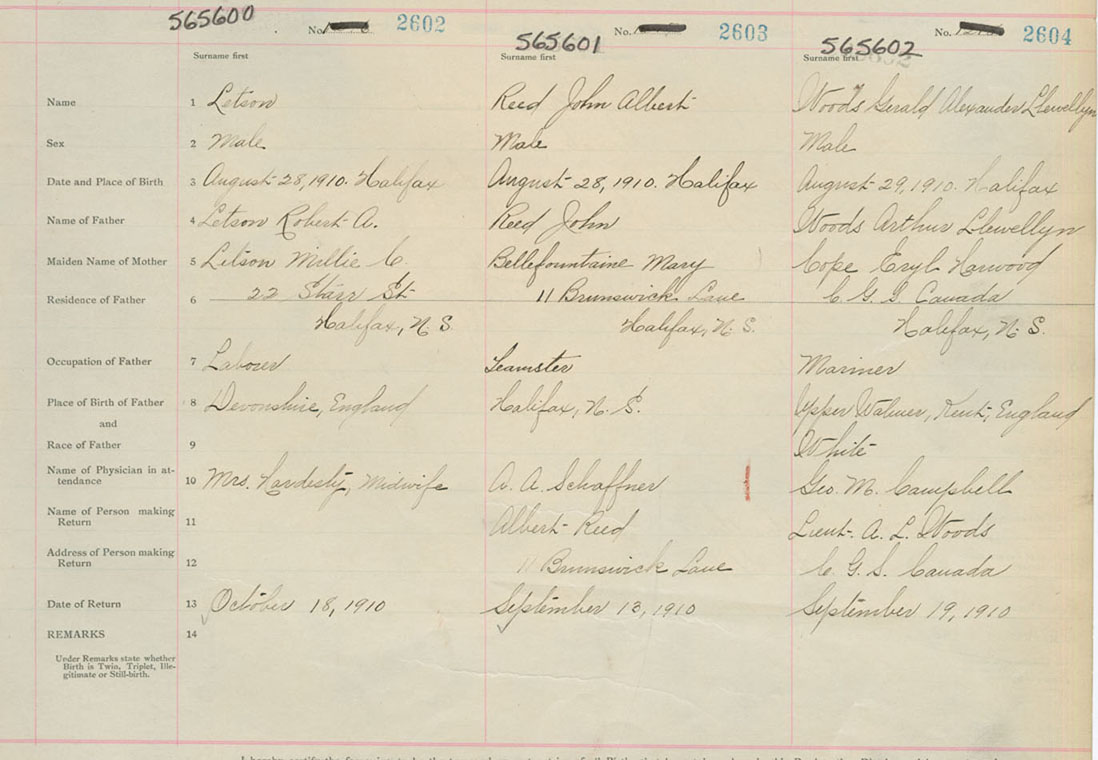 565600 No. 2602 565601 No. 2603 565602 No. 2604
Surname first Surname first Surname first
Name 1 Letson Reed John Albert Woods Gerald Alexander Llewellyn
Sex 2 Male Male Male
Date and Place of Birth 3 August 28, 1910. Halifax August 28, 1910. Halifax August 29, 1910. Halifax
Name of Father 4 Letson Robert A. Reed John Woods Arthur Llewellyn
Maiden Name of Mother 5 Letson Millie C. Bellefountaine Mary Cope Eryl Harwood
Residence of Father 6 22 Starr St 11 Brunswick Lane C. G. S. Canada
Halifax, N. S. Halifax, N. S. Halifax, N. S.
Occupation of Father 7 Laborer Teamster Mariner
Place of Birth of Father 8 Devonshire, England Halifax, N. S. Upper Walmer, Kent, England
and
Race of Father 9 White
Name of Physician in at-
tendance 10 Mrs. Hardesty, Midwife A. A. Schaffner Geo. M. Campbell
Name of Person making
Return 11 Albert Reed Lieut. A. L. Woods
Address of Person making
Return 12 11 Brunswick Lane C. G. S. Canada
Date of Return 13 October 18, 1910 September 13, 1910 September 19, 1910
REMARKS 14
Under Remarks state whether
Birth is Twin, Triplet, Ille-
gitimate or Still-birth.